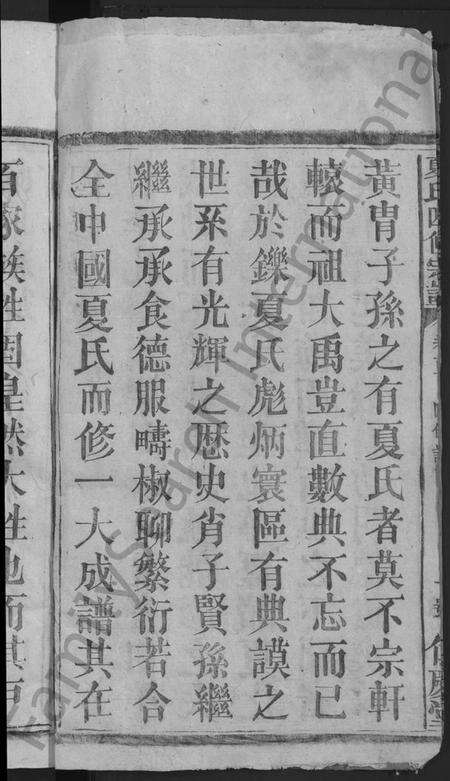 黃冑子孫之有夏氏者莫不宗軒
轅而祖大禹豈直數典不忘而已
哉於鑠夏氏彪炳寰區有典謨之
世系有光輝之歷史肖子賢孫繼
繼承承食德服疇椒聊繁衍若合
全中國夏氏而修一大成譜其在
百家族姓固皇然大姓也而其
FamilySearch International